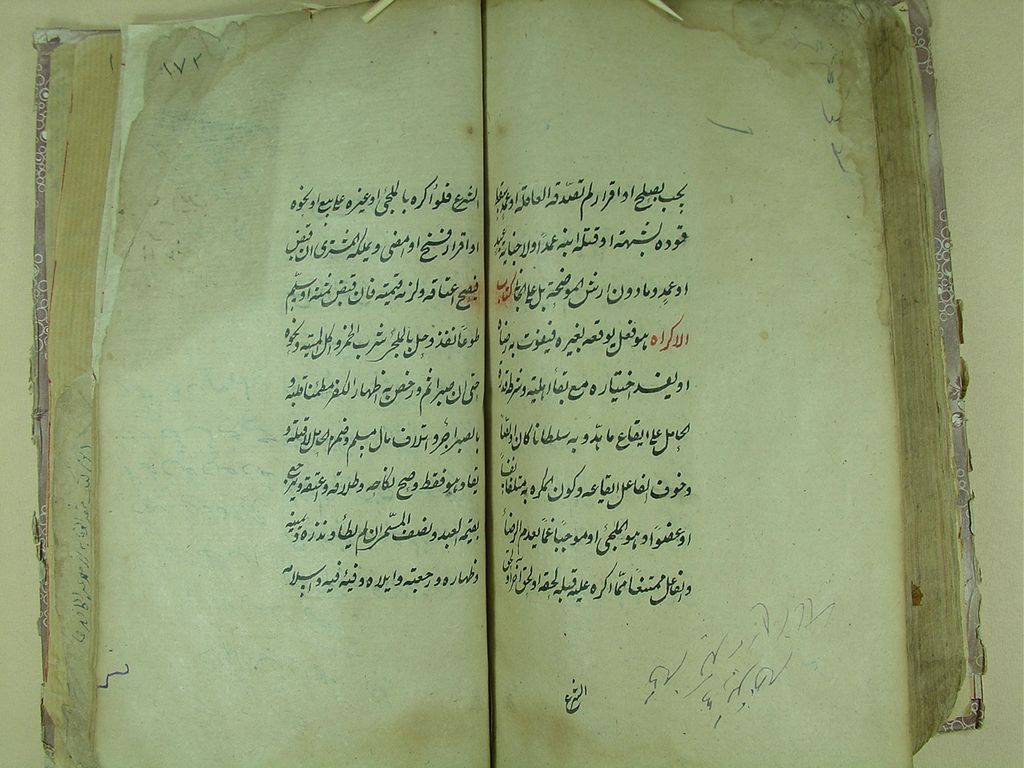 يجب بصلح او اقرار لم تصدقه العاقلة او عمد سقط
قوده بشبهة او قتله ابنه عمدا ولا جناية عبد
او عمد وما دون ارش الموضحة بل على الجاني كتاب
الاكراه هو فعل يوقعه بغيره فيفوت به رضاه
او يفسد اختياره مع بقاء اهليته وشرطه قدرة
الحامل على ايقاع ما هدد به سلطانا كان او لصا
وخوف الفاعل ايقاعه وكون المكره به متلفا نفسا
او عضوا وهو الملجئ او موجبا غما يعدم الرضاء
والفاعل ممتنعا عما اكره عليه قبله لحقه او لحق آخر او لحق
الشرع
١٧٢
الشرع فلو اكره بالملجئ او غيره على بيع او نحوه
او اقرار فسخ او امضى ويملكه المشتري ان قبض
فيصح اعتاقه ولزمه قيمته فان قبض ثمنه او سلم
طوعا نفذ وحل بالملجئ شرب الخمر واكل الميتة ونحوه
حتى ان صبر اثم ورخص به اظهار الكفر مطمئنا قلبه و
بالصبر اجر واتلاف مال مسلم وضمن الحامل لا قتله و
يقاد هو فقط وصح نكاحه وطلاقه وعتقه ورجع
بقيمة العبد ونصف المسمى ان لم يطأ ونذره ويمينه
وظهاره ورجعته وايلاه وفيئه فيه واسلامه